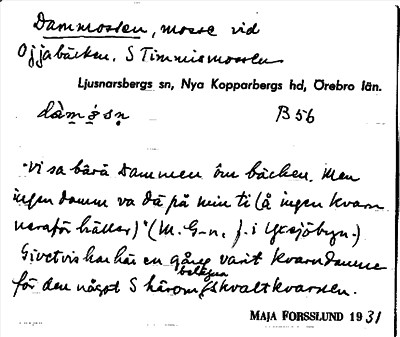 Dammossen, mosse vid
Ojjabäcken, S Timmismossen
Ljusnarsbergs sn, Nya Kopparbergs hd, Örebro län.
dàm̥ɔ́sn̥ B 56
"Vi sa bårå Dammen öm bäcken. Men
ingen damm va dä på min ti (å ingen kvarn
neraför häller)" (M. G-n, f. i Yxsjöbyn.)
Givetvis har här en gång varit kvarndamm
för den något S härom belägna skvaltkvarnen.
MAJA FORSSLUND 1931